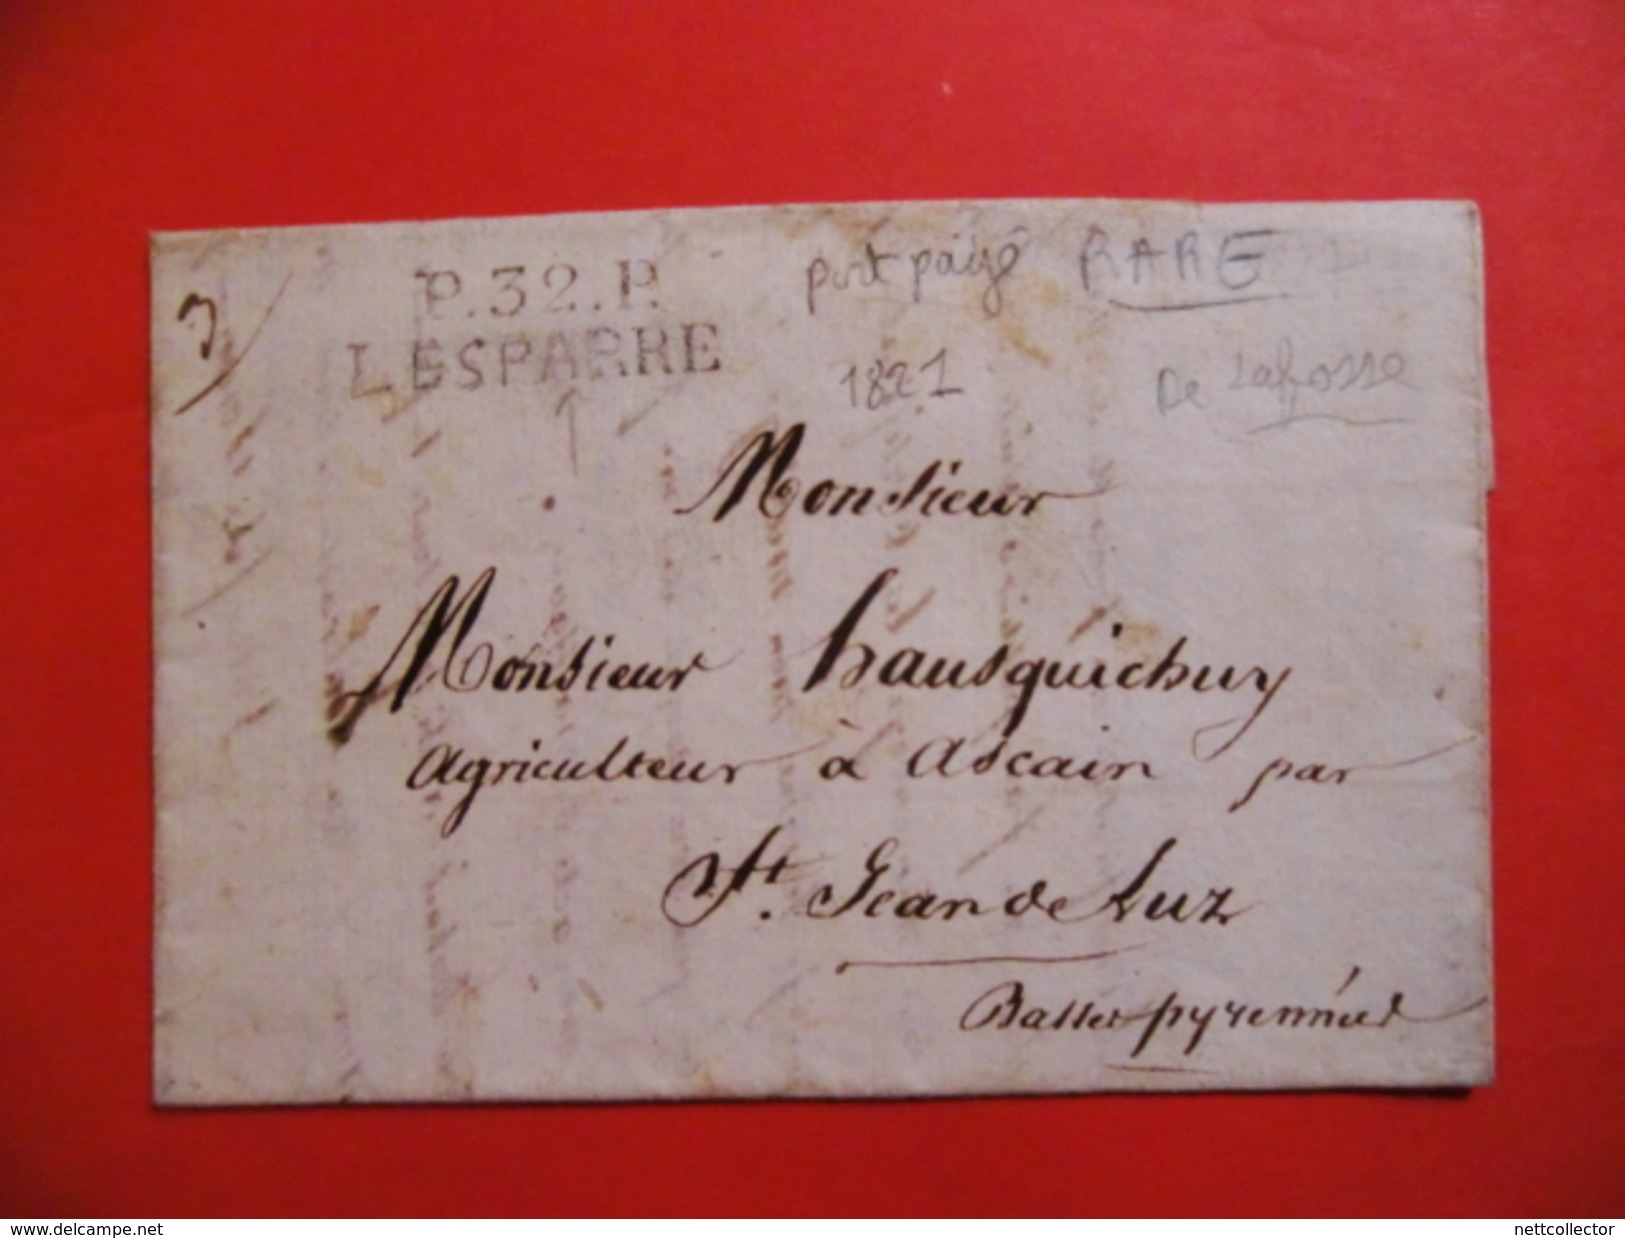 P.32.P. port payé RARE
LESPARRE 1821 De Lafosse
Monsieur
Monsieur hausquichuy
agriculteur à ascain par
St. Jean de Luz
Basses pyrennées
delcampe.net nettcollector